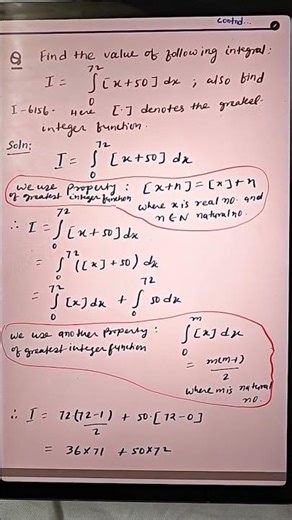 Contnd...
Q Find the value of following integral:
I = ∫₀⁷² [x+50] dx ; also find
I-6156. Here [·] denotes the greatest-
integer function.
Soln: I = ∫₀⁷² [x+50] dx
we use property : [x+n] = [x]+n
of greatest integer function where x is real no. and
n∈N natural no.
∴ I = ∫₀⁷² [x+50] dx
= ∫₀⁷² ([x]+50) dx
= ∫₀⁷² [x] dx + ∫₀⁷² 50 dx
we use another property : ∫₀ᵐ [x] dx
of greatest integer function = m(m-1)/2
where m is natural
no.
∴ I = 72(72-1)/2 + 50·[72-0]
= 36×71 + 50×72